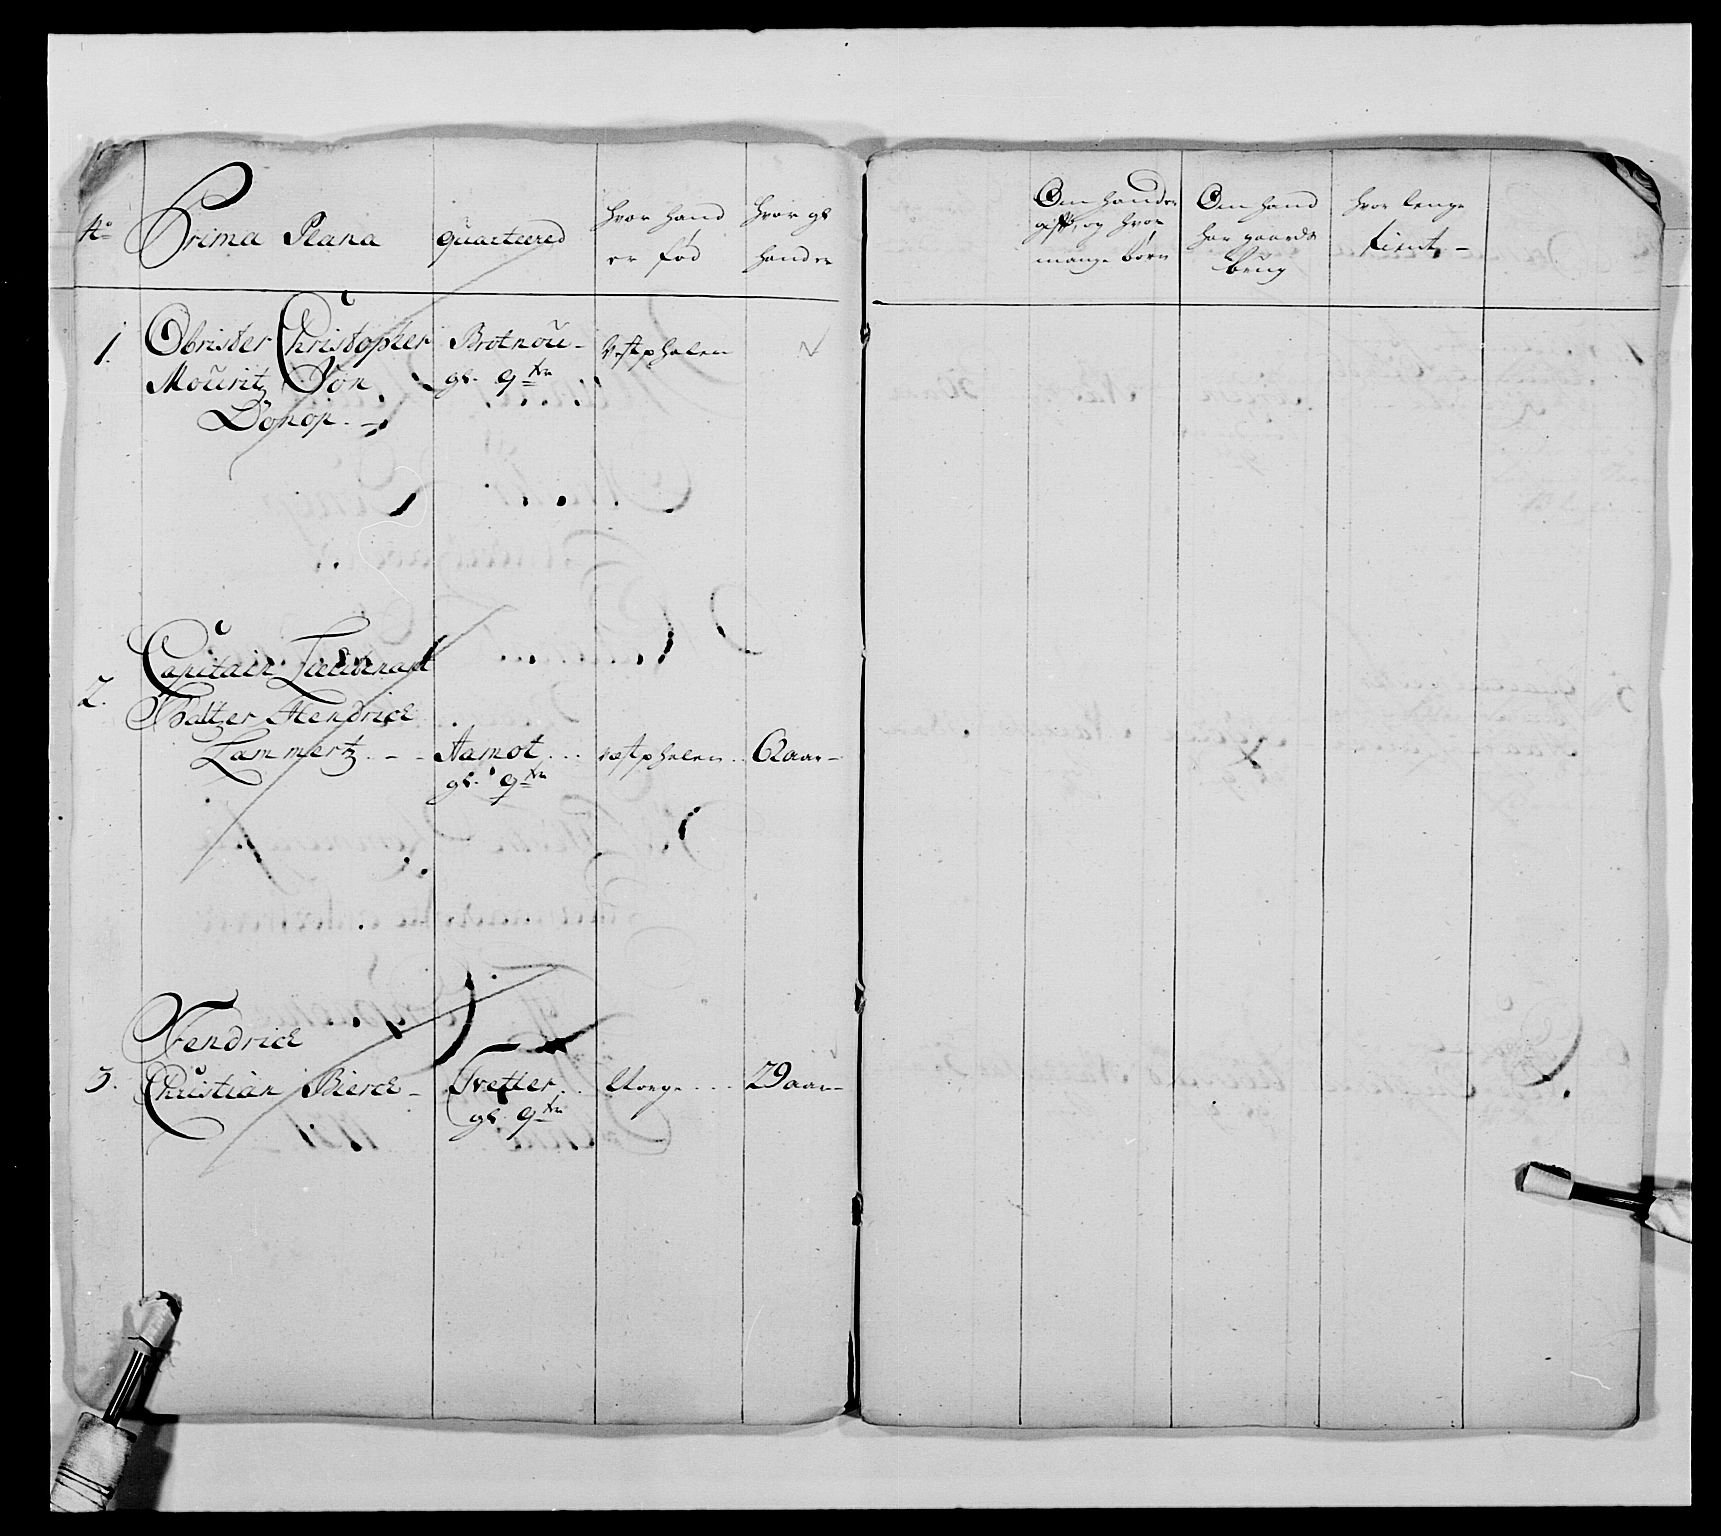 No
Prima Plana
quarteered
hvor hand
er fød
hvor gl
hand er
Om hand er
gift, og hvor
mange børn
Om hand
har gaards
brug
hvor lenge
tient
1.
Obrister Christopher
Mouritz Von
Donop. -
Brotnou-
gl.
Vestphalen
2.
Capitain Lieutenant
Baltzer Hendrich
Lammertz. - -
Aamot ...
gl.
vestphalen ..
62 aar -
3.
Fendrich
Christian Bierch -
Tvetter ..
gl.
Norge ...
29 aar -